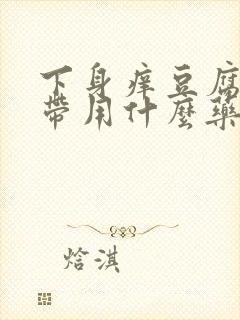 下身痒豆腐
带用什麼藥
焓淇